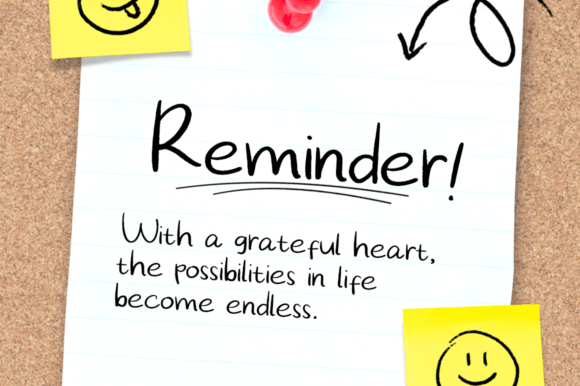 Reminder!
With a grateful heart,
the possibilities in life
become endless.